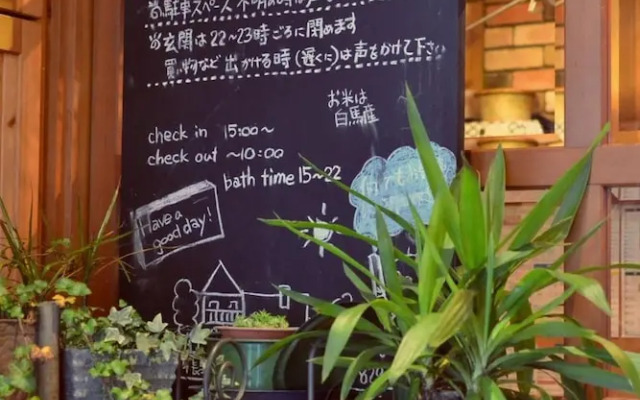 ※駐車スペース 不明
※玄関は22〜23時ごろに閉めます
買い物など出かける時(遅くに)は声をかけて下さい
お米は
白馬産
check in 15:00〜
check out 〜10:00
bath time 15〜22
Have a
good day!